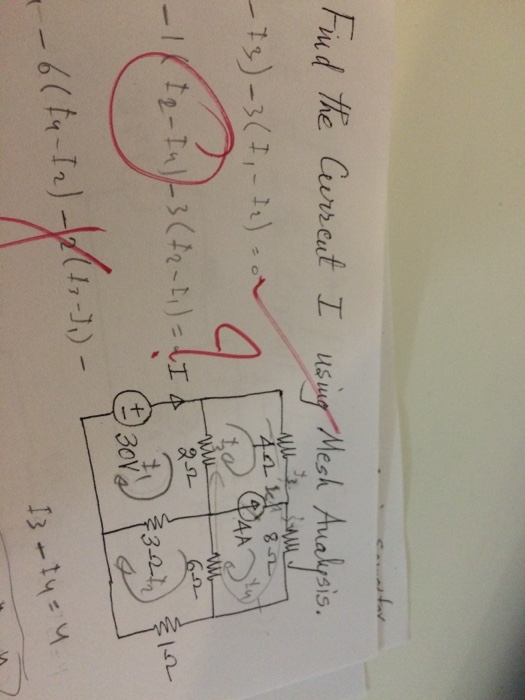 Find the Current I using Mesh Analysis.
- I3) - 3(I1 - I2) = 0
- 1( I2 - I4) - 3(I2 - I1) =
- 6(I4 - I2) - 2(I3 - I1) -
I
4Ω
8Ω
I3
4A
I4
2Ω
6Ω
30V
I1
3Ω
I2
1Ω
I3 + I4 = 4